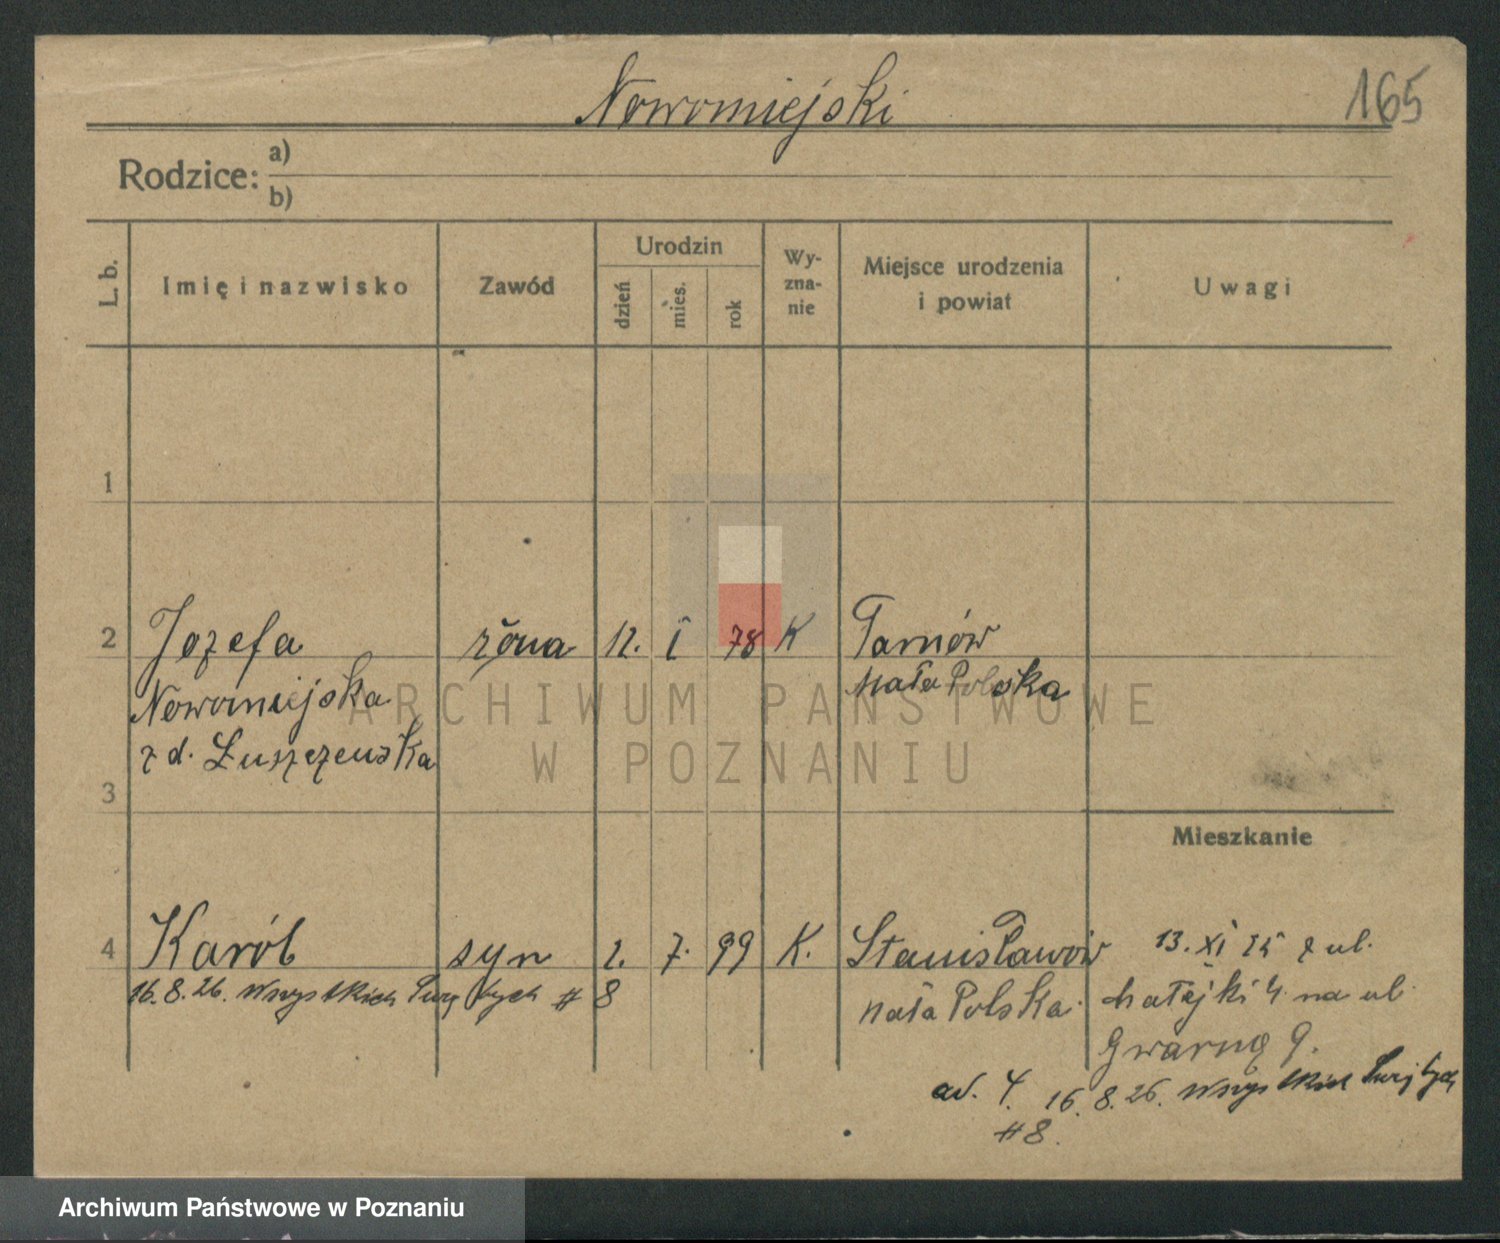 Nowomiejski
165
Rodzice: a)
b)
L. b.
Imię i nazwisko
Zawód
Urodzin
dzień
mies.
rok
Wy-
zna-
nie
Miejsce urodzenia
i powiat
Uwagi
1
2 Jozefa żona 12. I 78 K Tarnów
Nowomiejska Mała Polska
z d. Łuszczewska
3
Mieszkanie
4 Karól syn 2. 7. 99 K. Stanisławów 13. XI 25 z ul.
16. 8. 26. Wszystkich Świętych # 8
Mała Polska Matejki 4. na ul.
Gwarną 9.
ad. 4. 16. 8. 26. Wszystkich Świętych
# 8.
ARCHIWUM PAŃSTWOWE
W POZNANIU
Archiwum Państwowe w Poznaniu